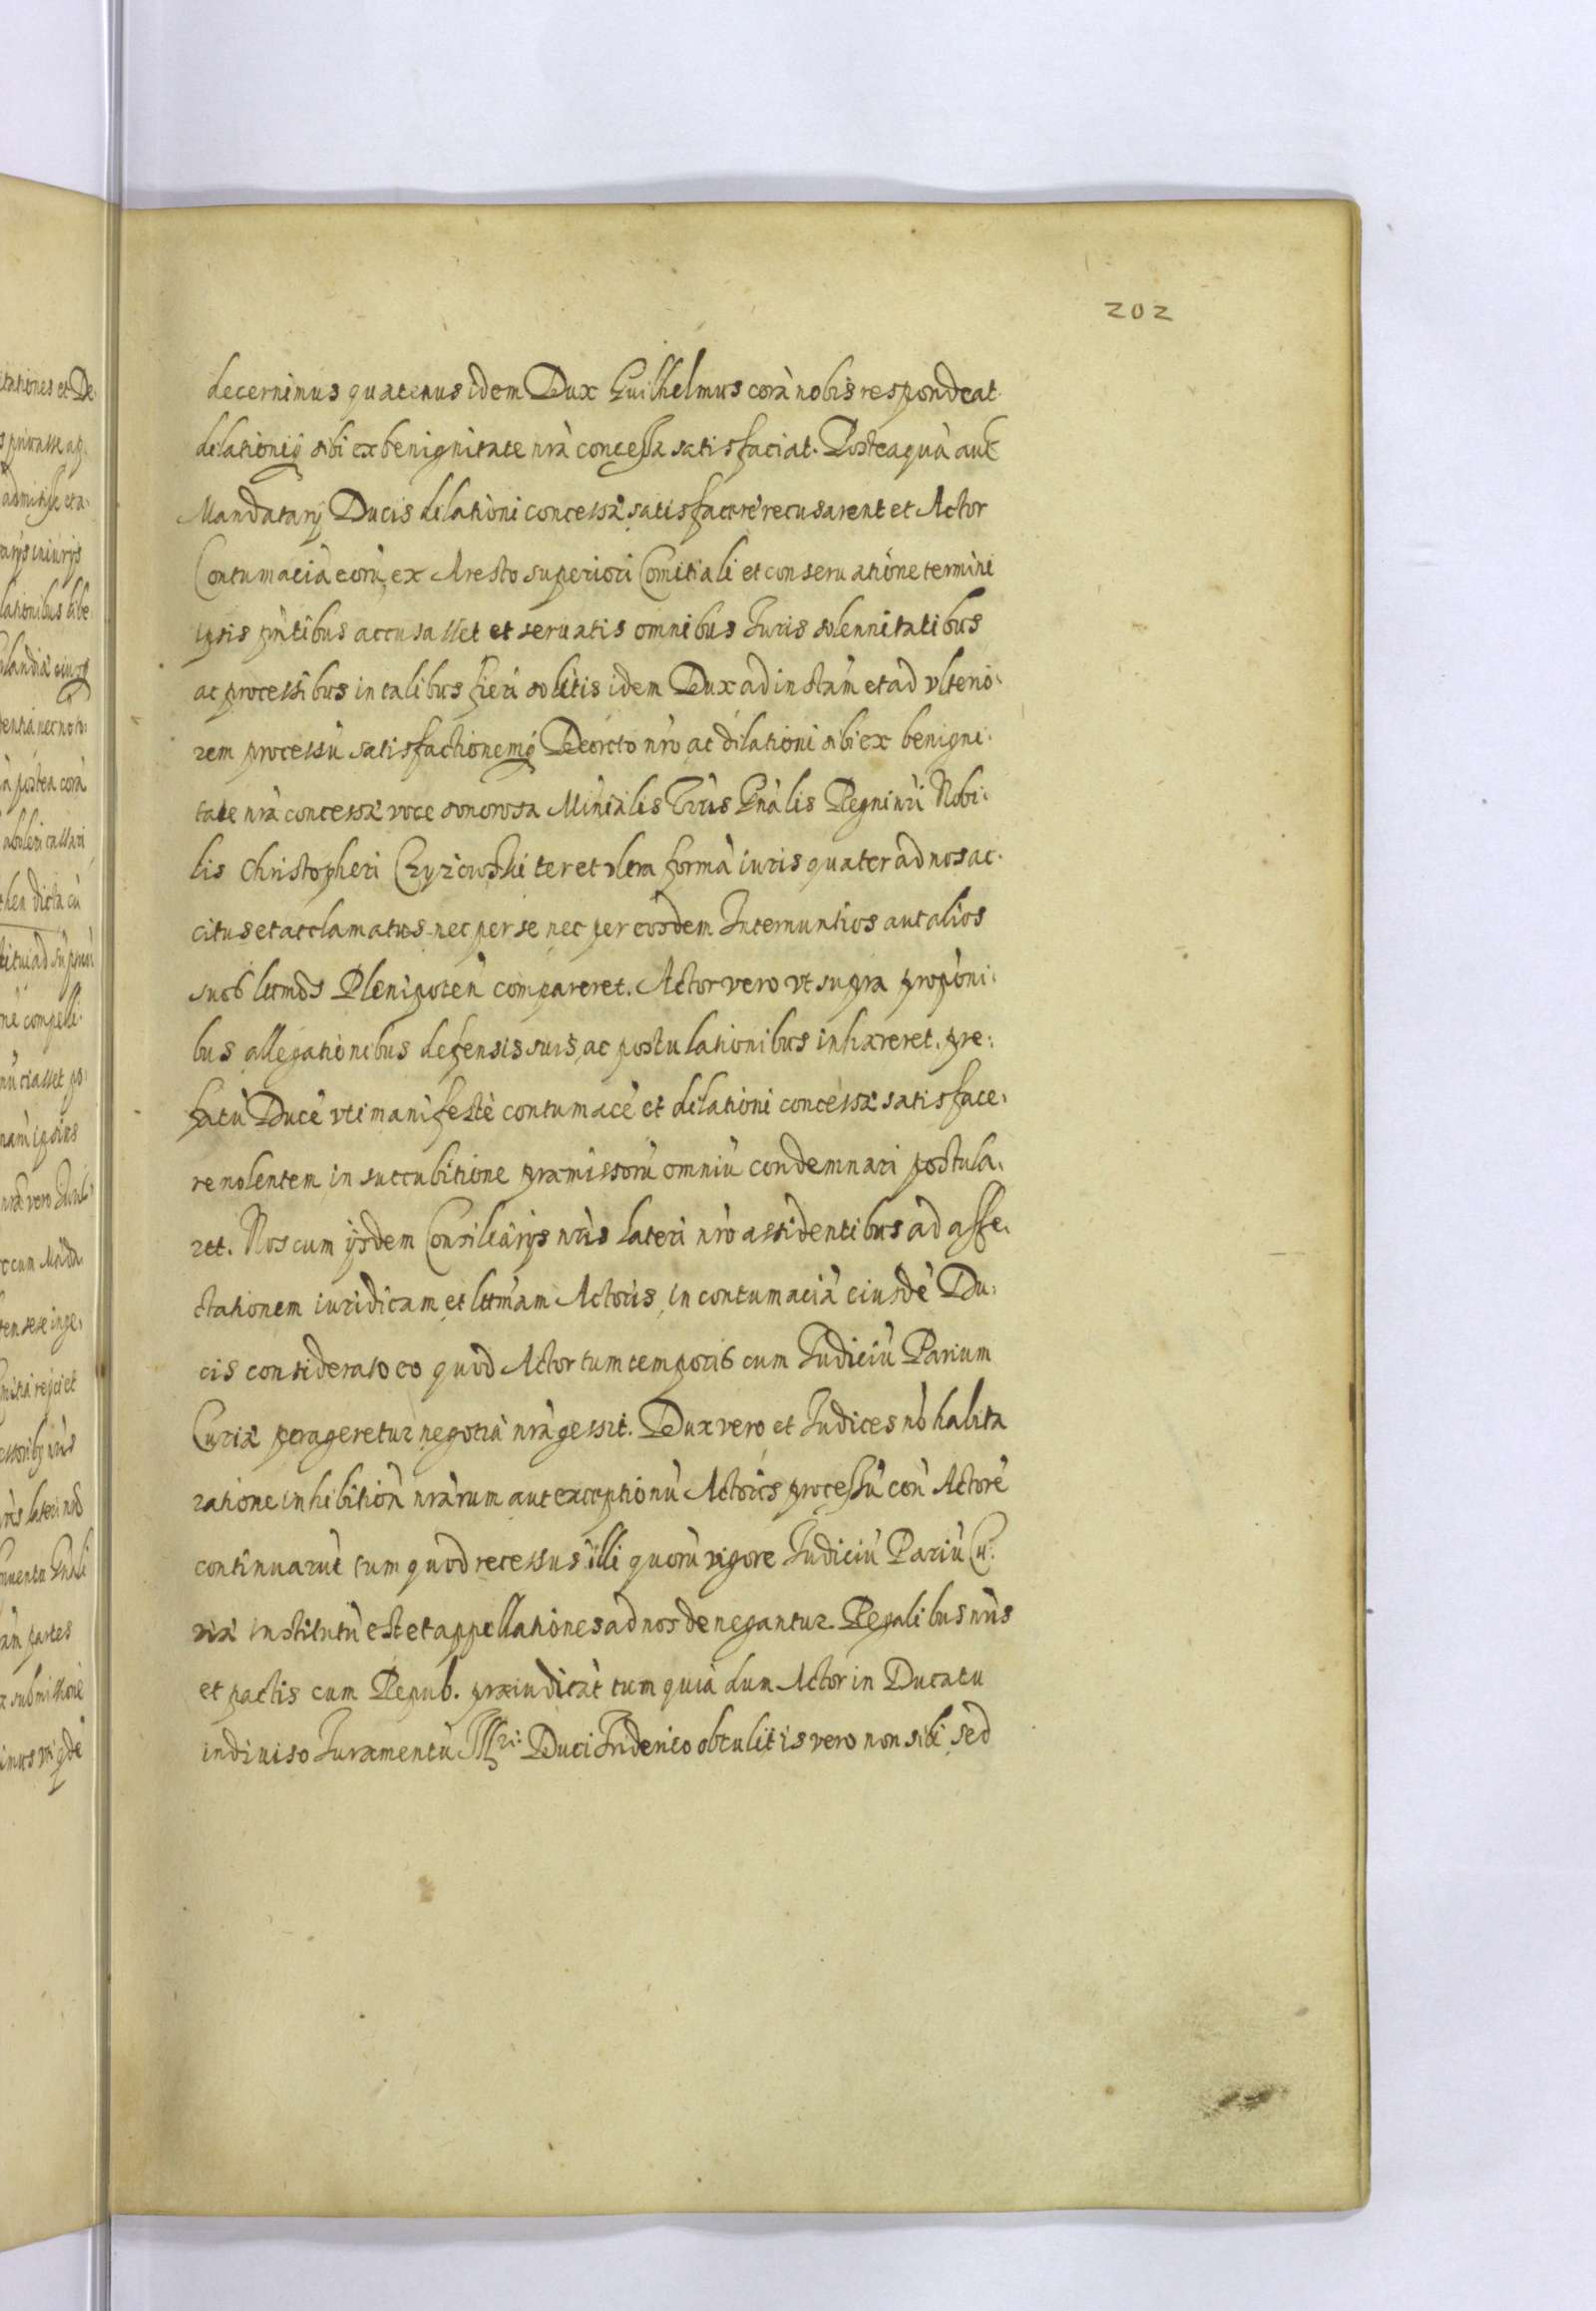 202
decernimus quatenus idem Dux Guilhelmus corà nobis respondeat
dilationiq̃ sibi ex benignitate nrã concessæ satisfaciat. Posteaquà aut
Mandatarij Ducis dilationi concessæ satisfacere recusarent et Actor
Contumacià eorù, ex Aresto superiori Comitiali et conseruatione termini
ipsis pñtibus accusasset et seruatis omnibus Iuris solennitatibus
ac processibus in talibus fieri solitis idem Dux ad instãm et ad vlterio-
rem processù satisfactionemq̃ Decreto nrõ ac dilationi sibi ex benigni-
tate nrã concessæ voce sonorosa Minĩalis Gñalis Regni nrĩ Nobi-
lis Christopheri ter et vltra formà iuris quater ad nos ac-
citus et acclamatus nec per se nec per eosdem Internuntios aut alios
suos Plenipoten compareret. Actor vero vt supra propõni-
bus allegationibus defensis suis ac postulationibus inhæreret. pre-
fatù Ducè vti manifestè contumacè et dilationi concessæ satisface-
re nolentem in succubitione præmissorù omniù condemnari postula-
ret. Nos cum ijsdem Consiliarijs nrĩs lateri nrõ assidentibus ad affe-
ctationem iuridicam et Actoris in contumacià eiusdè Du-
cis considerato eo quod Actor tum temporis cum Iudiciù Parium
Curiæ perageretur negotia nrã gessit. Dux vero et Iudices nõ habita
ratione inhibitionũ nrãrum aut exceptionù Actoris processù con Actorè
continuarũt tum quod recessus illi quorù vigore Iudiciù Pariù Cu-
riæ institutù est et appellationes ad nos denegantur. Regalibus nrĩs
et pactis cum Repub. præiudicãt tum quia dum Actor in Ducatu
indiuiso Iuramentù Illri: Duci Friderico obtulit is vero non sibi sed